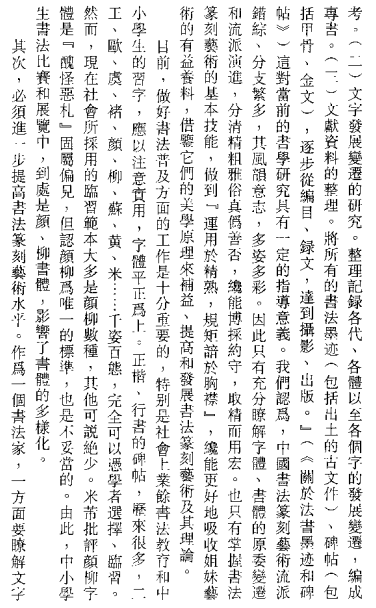 考。（二）文字發展變遷的研究。整理記録各代、各體以至各個字的發展變遷，編成
專書。（三）文獻資料的整理。將所有的書法墨迹（包括出土的古文件）、碑帖（包
括甲骨、金文），逐步從編目、録文，達到攝影、出版。』（《關於法書墨迹和碑
帖》）這對當前的書學研究具有一定的指導意義。我們認爲，中國書法篆刻藝術流派
錯綜、分支繁多，其風韻意志，多姿多彩。因此只有充分瞭解字體、書體的原委變遷
和流派演進，分清精粗雅俗真僞善否，纔能博採約守，取精而用宏。也只有掌握書法
篆刻藝術的基本技能，做到『運用於精熟，規矩諳於胸襟』，纔能更好地吸收姐妹藝
術的有益養料，借鑒它們的美學原理來補益、提高和發展書法篆刻藝術及其理論。
目前，做好書法普及方面的工作是十分重要的，特别是社會上業餘書法教育和中
小學生的習字，應以注意實用，字體平正爲上。正楷、行書的碑帖，歷來很多，二
王、歐、虞、褚、顔、柳、蘇、黄、米……千姿百態，完全可以憑學者選擇、臨習。
然而，現在社會所採用的臨習範本大多是顔柳數種，其他可説絶少。米芾批評顔柳字
體是『醜怪惡札』固屬偏見，但認顔柳爲唯一的標準，也是不妥當的。由此，中小學
生書法比賽和展覽中，到處是顔、柳書體，影響了書體的多樣化。
其次，必須進一步提高書法篆刻藝術水平。作爲一個書法家，一方面要瞭解文字